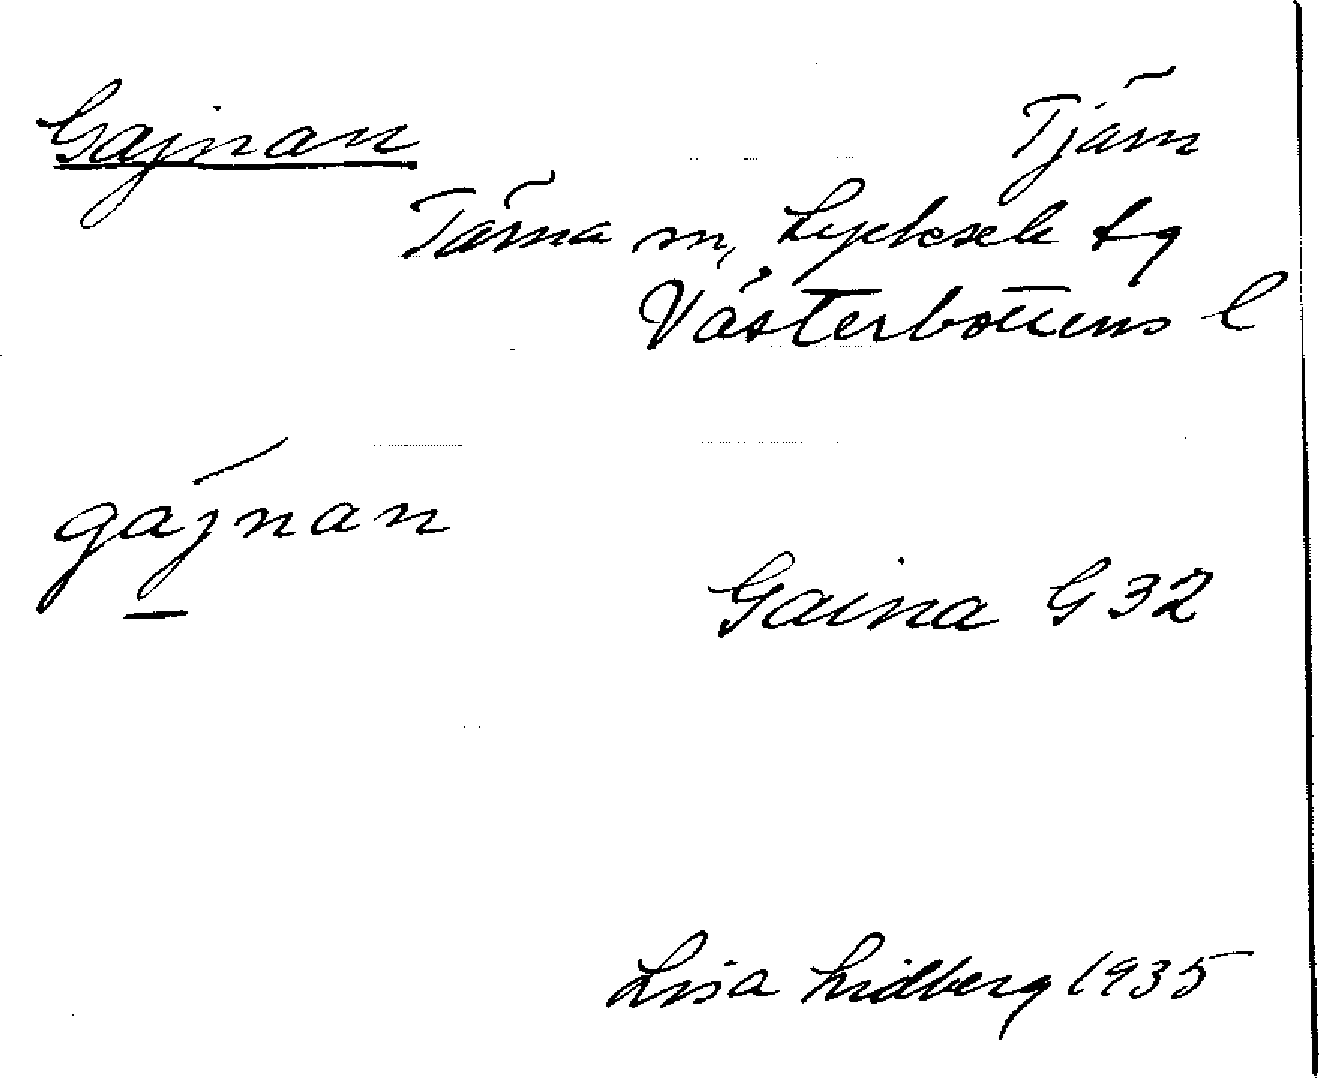 Gajnan Tjärn
Tärna sn, Lycksele tg
Västerbottens l
gajnan
Gaina G 32
Lisa Lidberg 1935